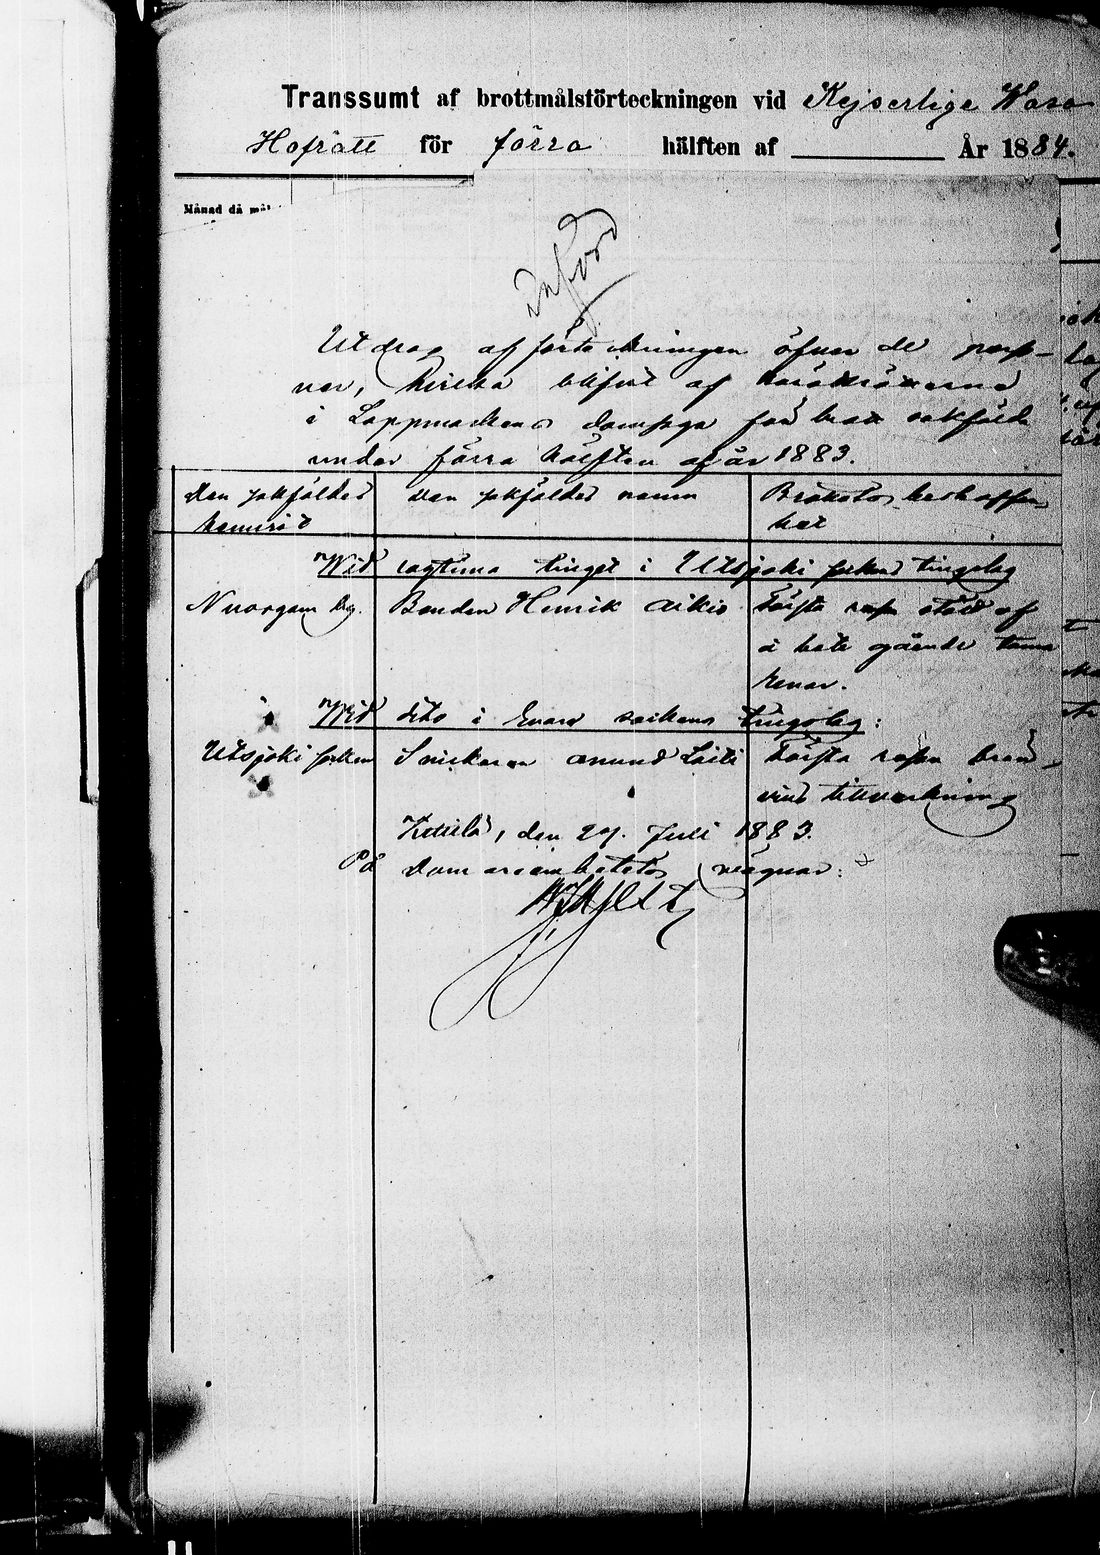 Transsumt af brottmålsförteckningen vid Kejserliga Wasa
Hofrätt för förra hälften af År 1884.
Månad då mål
Införd
Utdrag af förteckningen öfver de perso-
ner, hvilka blifvit af häradsrätterna
i Lappmarkens domsaga för brott sakfälde
under förra hälften af år 1883.
Den sakfäldes Den sakfäldes namn Brottets beskaffen-
hemvist het
Wid lagtima tinget i Utsjoki sockens tingslag
Nuorgam by. Bonden Henrik Aikio Första resan stöld af
å bete gående tama
renar.
Wid dito i Enare sockens tingslag:
Utsjoki socken Snickaren Amund Laiti Första resan brän-
vins tillverkning
Kittilä, den 29. Juli 1883.
På domareämbetets vägnar: